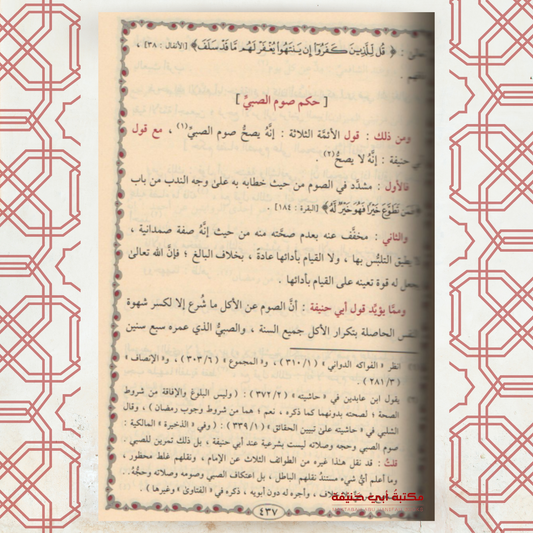 : ﴿ قُل لِّلَّذِينَ كَفَرُوٓا۟ إِن يَنتَهُوا۟ يُغْفَرْ لَهُم مَّا قَدْ سَلَفَ ﴾ [الأنفال : ٣٨] ،
[ حكم صوم الصبيِّ ]
ومن ذلك : قول الأئمَّة الثلاثة : إنَّهُ يصحُّ صوم الصبيِّ(١) ، مع قول
حنيفة : إنَّهُ لا يصحُّ(٢) .
فالأول : مشدَّد في الصوم من حيث خطابه به علىٰ وجه الندب من باب
تَطَوَّعَ خَيْرًا فَهُوَ خَيْرٌ لَّهُ﴾ [البقرة : ١٨٤] .
والثاني : مخفَّف عنه بعدم صحَّته منه من حيث إنَّهُ صفة صمدانية ،
يطيق التلبُّس بها ، ولا القيام بأدائها عادةً ، بخلاف البالغ ؛ فإنَّ الله تعالىٰ
جعل له قوة تعينه على القيام بأدائها .
وممَّا يؤيِّد قول أبي حنيفة : أنَّ الصوم عن الأكل ما شُرع إلا لكسر شهوة
النفس الحاصلة بتكرار الأكل جميع السنة ، والصبيُّ الذي عمره سبع سنين
انظر « الفواكه الدواني » ( ٣١٠/١ ) ، و« المجموع » ( ٣٠٣/٦ ) ، و« الإنصاف »
( ٢٨١/٣ ) .
يقول ابن عابدين في « حاشيته » ( ٣٧٢/٢ ) : ( وليس البلوغ والإفاقة من شروط
الصحة ؛ لصحته بدونهما كما ذكره ، نعم ؛ هما من شروط وجوب رمضان ) ، وقال
الشلبي في « حاشيته علىٰ تبيين الحقائق » ( ٣٣٩/١ ) : ( وفي « الذخيرة » المالكية :
صوم الصبي وحجه وصلاته ليست بشرعية عند أبي حنيفة ، بل ذلك تمرين للصبي .
قلتُ : قد نقل هٰذا غيره من الطوائف الثلاث عن الإمام ، ونقلهم غلط محظور ،
وما أعلم أيُّ شيء مستندُ نقلهم الباطل ، بل اعتكاف الصبي وصومه وصلاته وحجهُ
خلاف ، وأجره له دون أبويه ، ذكره في « الفتاوىٰ » وغيرها ) .
٤٣٧
مكتبة أبي حنيفة